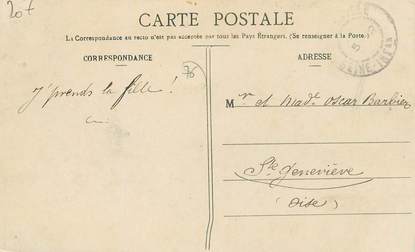 207
CARTE POSTALE
La Correspondance au recto n'est pas acceptée par tous les Pays Étrangers. (Se renseigner à la Poste.)
CORRESPONDANCE
ADRESSE
76
J'prends la fille !
M r et Mad e Oscar Barbier
Ste Geneviève
(Oise)
SEINE-INFRE